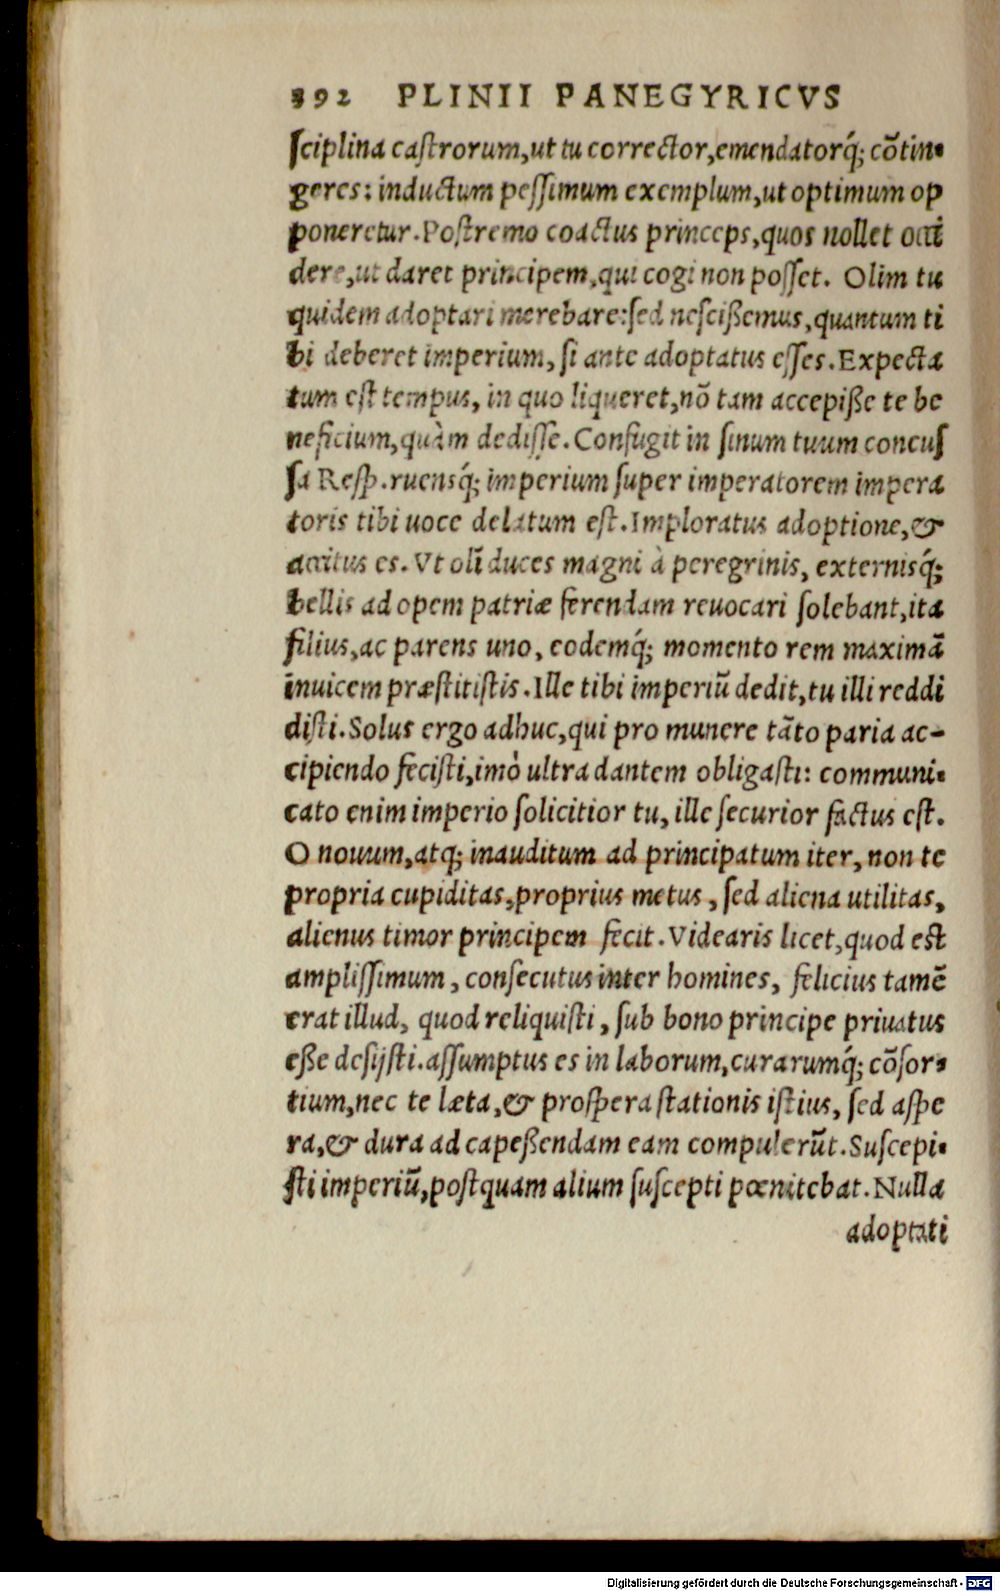 392 PLINII PANEGYRICVS
ſciplina caſtrorum,ut tu corrector,emendatorq́; cõtin-
geres: inductum peſſimum exemplum,ut optimum op
poneretur.Poſtremo coactus princeps,quos nollet occi
dere,ut daret principem,qui cogi non poſſet. Olim tu
quidem adoptari merebare:ſed neſcißemus,quantum ti
bi deberet imperium, ſi ante adoptatus eſſes.Expecta
tum eſt tempus, in quo liqueret,nõ tam accepiße te be
neficium,quàm dediſſe.Confugit in ſinum tuum concuſ
ſa Reſp.ruensq́; imperium ſuper imperatorem impera
toris tibi uoce delatum eſt.Imploratus adoptione,&
accitus es. Vt olĩ duces magni à peregrinis, externisq́;
bellis ad opem patriæ ferendam reuocari ſolebant,ita
filius,ac parens uno, eodemq́; momento rem maximã
inuicem præſtitiſtis.Ille tibi imperiũ dedit,tu illi reddi
diſti.Solus ergo adhuc,qui pro munere tãto paria ac-
cipiendo feciſti,imò ultra dantem obligaſti: communi-
cato enim imperio ſolicitior tu, ille ſecurior factus eſt.
O nouum,atq; inauditum ad principatum iter, non te
propria cupiditas,proprius metus, ſed aliena utilitas,
alienus timor principem fecit.Videaris licet,quod est
ampliſſimum, conſecutus inter homines, felicius tamẽ
erat illud, quod reliquiſti, ſub bono principe priuatus
eße deſijſti.aſſumptus es in laborum,curarumq́; cõſor-
tium,nec te læta,& proſpera ſtationis iſtius, ſed aſpe
ra,& dura ad capeßendam eam compulerũt.Suſcepi-
ſti imperiũ,poſtquam alium ſuſcepti pœnitebat.Nulla
adoptati
Digitalisierung gefördert durch die Deutsche Forschungsgemeinschaft - DFG